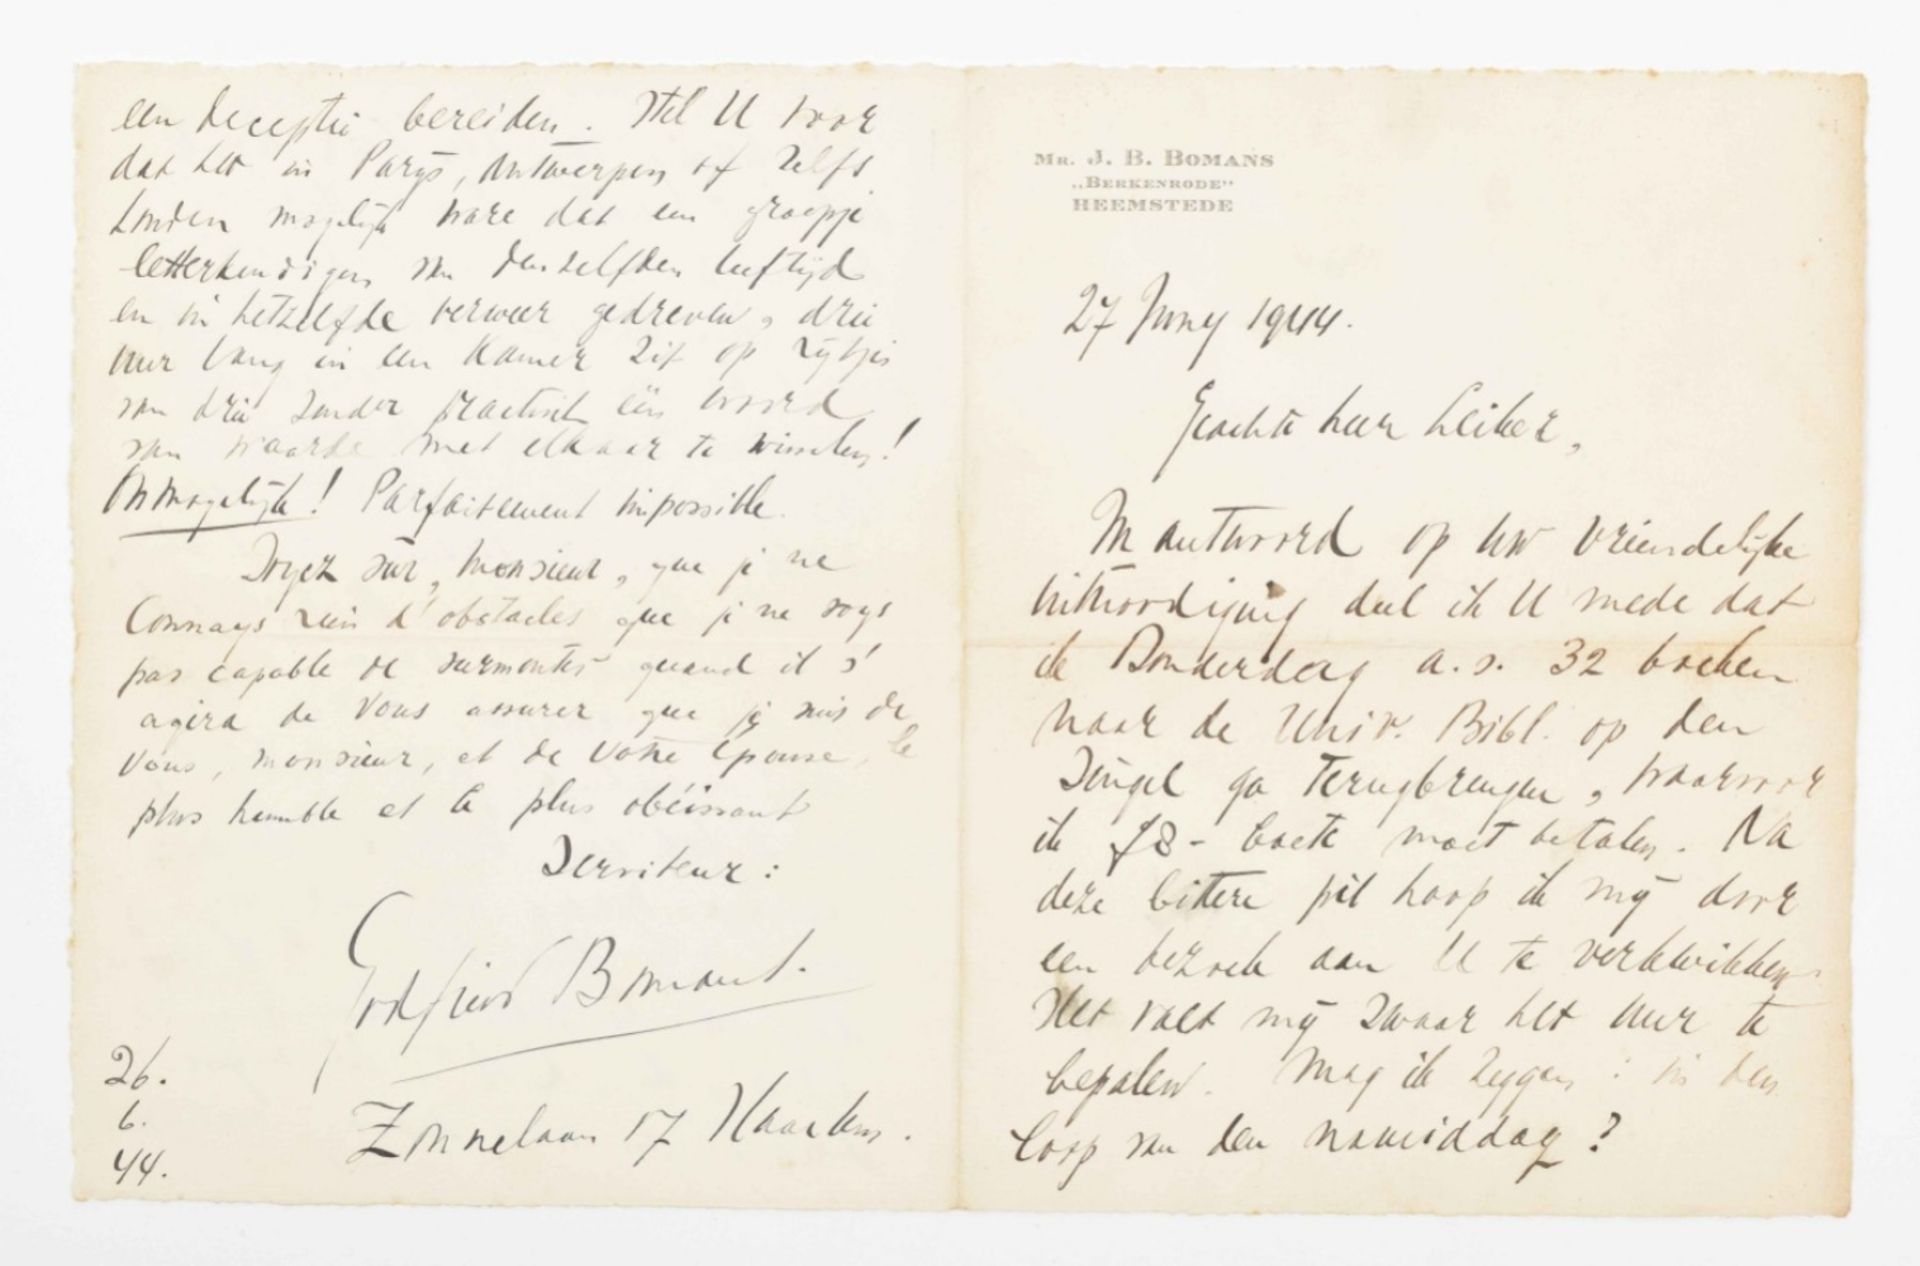 een deceptie bereiden. Stel U voor
dat het in Parys, Antwerpen of zelfs
Londen mogelijk ware dat een groepje
letterkundigen van denzelfden leeftijd
en in hetzelfde verweer gedreven, drie
uur lang in een kamer zit op rijtjes
van drie zonder practisch één woord
van waarde met elkaar te wisselen!
Onmogelijk! Parfaitement impossible.
Soyez sur, monsieur, que je ne
connays rien d'obstacles que je ne soys
pas capable de surmonter quand il s'
agira de vous assurer que je suis de
vous, monsieur, et de votre épouse, le
plus humble et le plus obéissant
Serviteur:
Godfried Bomans.
26.
6.
44.
Zonnelaan 17 Haarlem.
MR. J. B. BOMANS
„BERKENRODE"
HEEMSTEDE
27 Juny 1944.
Geachte heer Leiker,
In antwoord op uw vriendelijke
uitnoodiging deel ik U mede dat
ik Donderdag a.s. 32 boeken
naar de Univ. Bibl. op den
Singel ga terugbrengen, waarvoor
ik f8- boete moet betalen. Na
deze bittere pil hoop ik mij door
een bezoek aan U te verkwikken.
Het valt mij zwaar het uur te
bepalen. Mag ik zeggen: in den
loop van den namiddag?